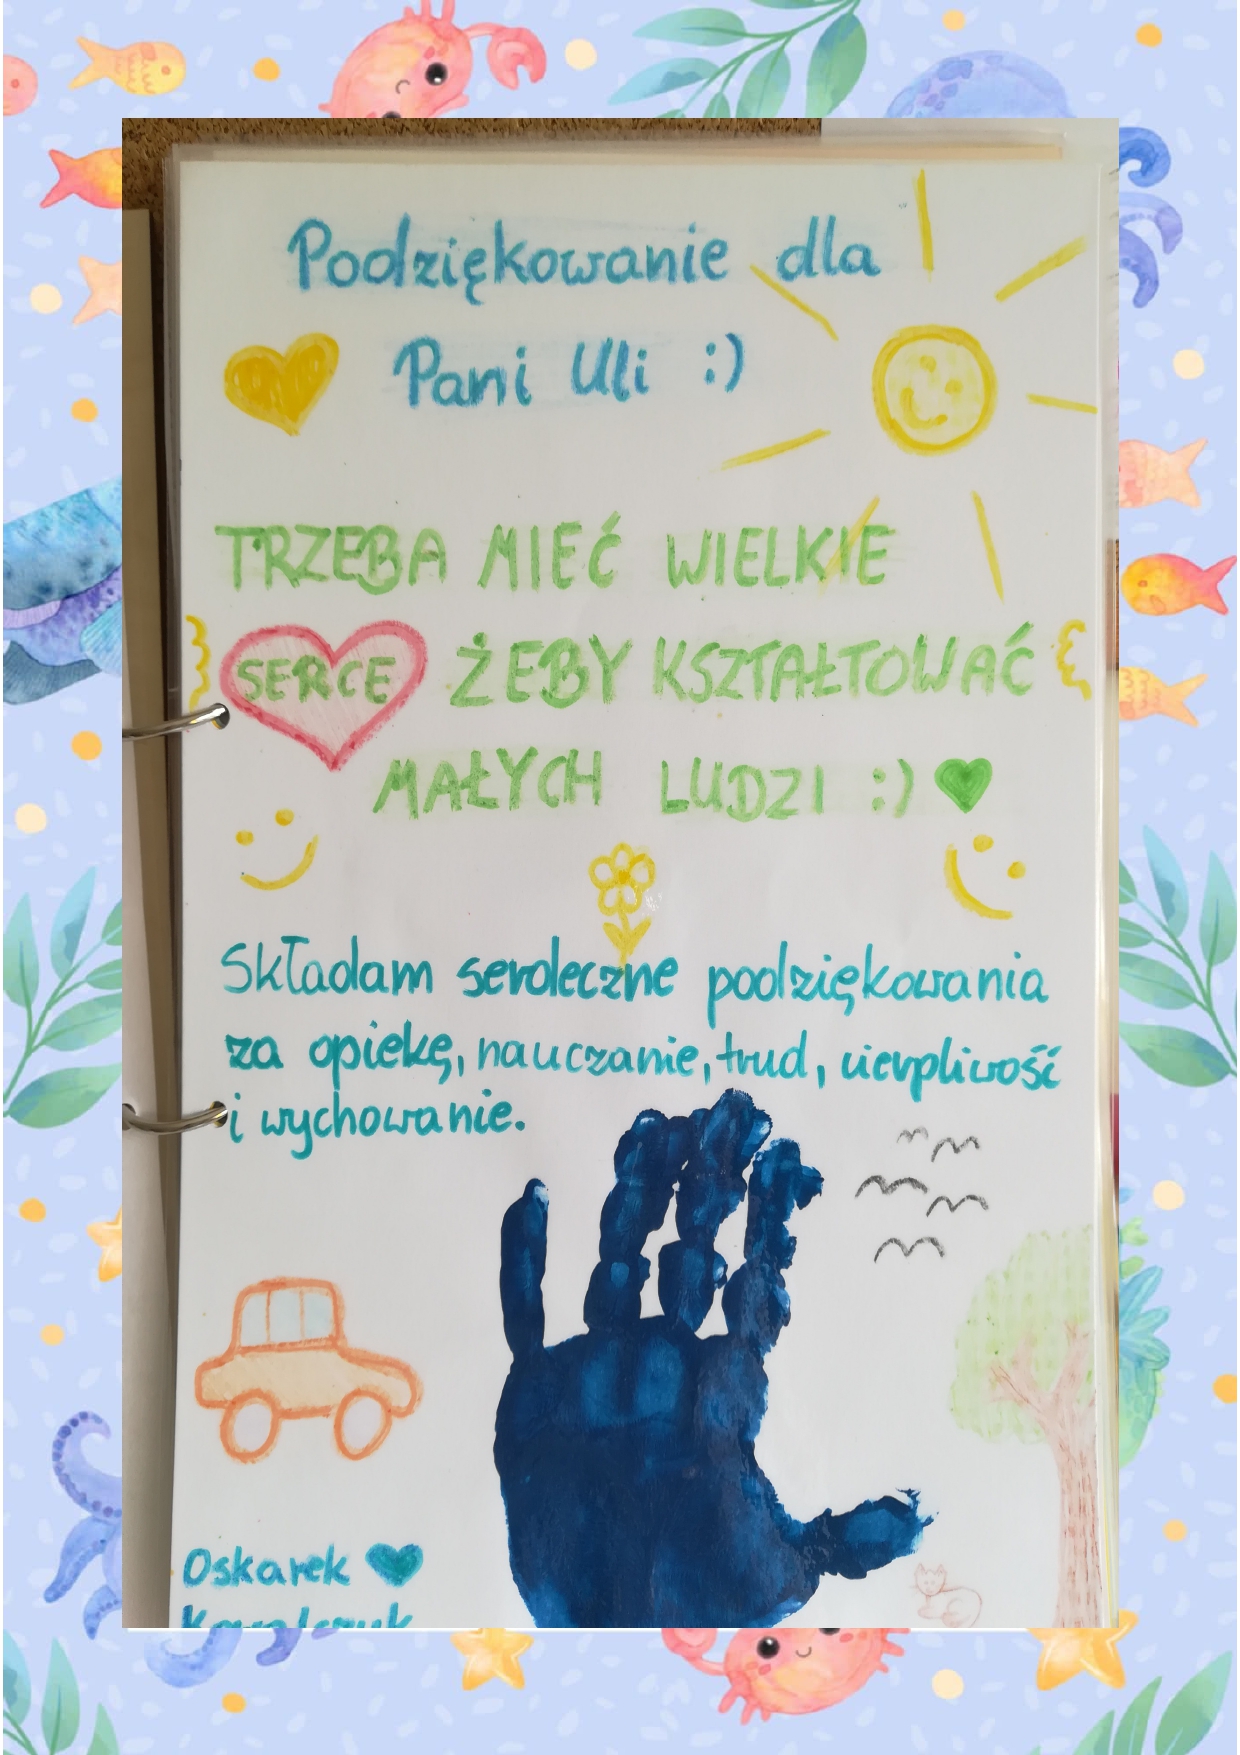 Podziękowanie dla
Pani Uli :)
TRZEBA MIEĆ WIELKIE
SERCE ŻEBY KSZTAŁTOWAĆ
MAŁYCH LUDZI :)
Składam serdeczne podziękowania
za opiekę, nauczanie, trud, cierpliwość
i wychowanie.
Oskarek
Kowalczuk